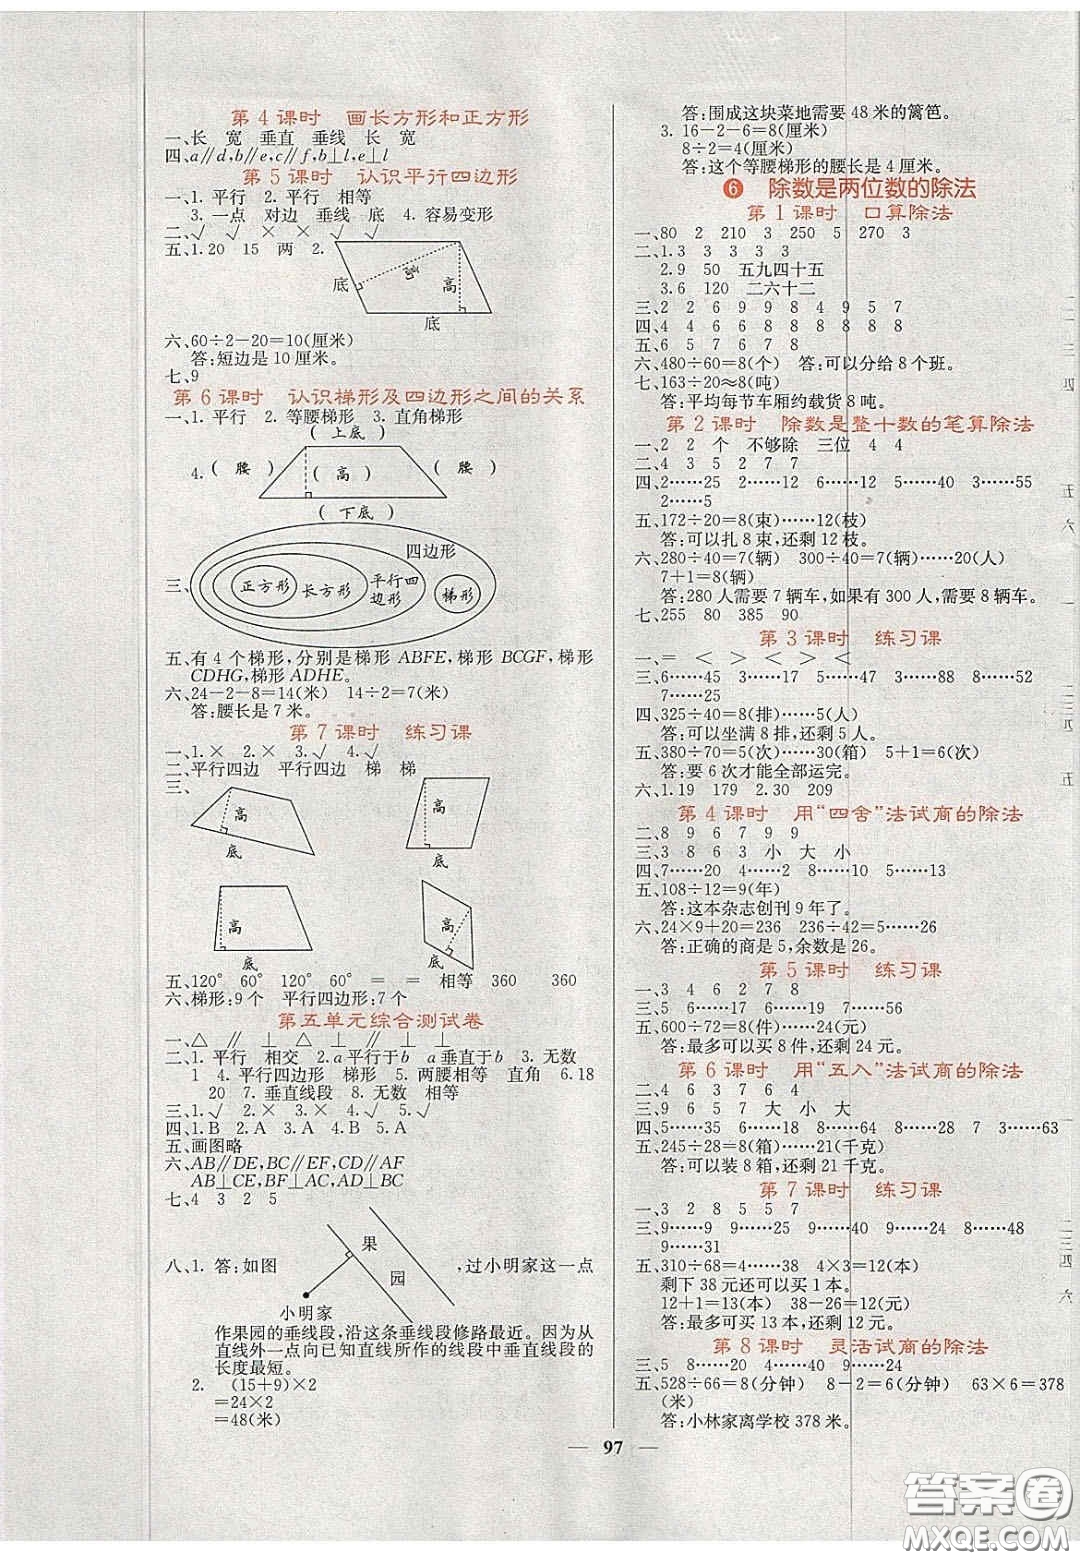 第4课时　画长方形和正方形
一、长　宽　垂直　垂线　长　宽
四、a∥d,b∥e,c∥f,b⊥l,e⊥l
第5课时　认识平行四边形
一、1. 平行　2. 平行　相等
3. 一点　对边　垂线　底　4. 容易变形
二、√　√　×　×　√　√
五、1.20　15　两　2.
底　高　高
底
六、60÷2－20＝10(厘米)
答:短边是 10 厘米。
七、9
第6课时　认识梯形及四边形之间的关系
一、1. 平行　2. 等腰梯形　3. 直角梯形
(上底)
4. (腰)　(高)　(腰)
(下底)
四边形
三、正方形　长方形　平行四边形　梯形
五、有 4 个梯形,分别是梯形 ABFE,梯形 BCGF,梯形
CDHG,梯形 ADHE。
六、24－2－8＝14(米)　14÷2＝7(米)
答:腰长是 7 米。
第7课时　练习课
一、1.×　2.×　3.√　4.√
二、平行四边　平行四边　梯　梯
三、
高　高
底　底
高　高
底　底
五、120°　60°　120°　60°　＝　＝　相等　360　360
六、梯形:9 个　平行四边形:7 个
第五单元综合测试卷
一、△　∥　△　⊥　∥　⊥　∥　⊥
二、1. 平行　相交　2.a平行于b　a垂直于b　3. 无数
1　4. 平行四边形　梯形　5. 两腰相等　直角　6.18
20　7. 垂直线段　8. 无数　相等
三、1.√　2.×　3.×　4.√　5.√
四、1.B　2.A　3.A　4.B　5.A
五、画图略
六、AB∥DE,BC∥EF,CD∥AF
AB⊥CE,BF⊥AC,AD⊥BC
七、4　3　2　5
果
八、1. 答:如图　园　,过小明家这一点
小明家
作果园的垂线段,沿这条垂线段修路最近。因为从
直线外一点向已知直线所作的线段中垂直线段的
长度最短。
2.　(15＋9)×2
＝24×2
＝48(米)
答:围成这块菜地需要 48 米的篱笆。
3. 16－2－6＝8(厘米)
8÷2＝4(厘米)
答:这个等腰梯形的腰长是 4 厘米。
6　除数是两位数的除法
第1课时　口算除法
一、80　2　210　3　250　5　270　3
二、1.3　3　3　3
2.9　50　五九四十五
3.6　120　二六十二
三、2　2　6　9　9　8　4　9　5　7
四、4　4　6　6　8　8　8　8　8　6
五、6　5　7　6　7　8
六、480÷60＝8(个)　答:可以分给 8 个班。
七、163÷20≈8(吨)
答:平均每节车厢约载货 8 吨。
第2课时　除数是整十数的笔算除法
一、2　2　个　不够除　三位　4　4
二、4　3　5　2　7　7
四、2……25　2……12　6……12　5……40　3……55
2……5
五、172÷20＝8(束)……12(枝)
答:可以扎 8 束,还剩 12 枝。
六、280÷40＝7(辆)　300÷40＝7(辆)……20(人)
7＋1＝8(辆)
答:280 人需要 7 辆车,如果有 300 人,需要 8 辆车。
七、255　80　385　90
第3课时　练习课
一、＝　＜　＞　＞　＞　＜
三、6……45　3……17　5……47　3……88　8……52
7……25
四、325÷40＝8(排)……5(人)
答:可以坐满 8 排,还剩 5 人。
五、380÷70＝5(次)……30(箱)　5＋1＝6(次)
答:要 6 次才能全部运完。
六、1.19　179　2.30　209
第4课时　用“四舍”法试商的除法
二、8　9　6　7　9　9
三、3　8　6　3　小　大　小
四、7……20　4……2　8……10　5……13
五、108÷12＝9(年)
答:这本杂志创刊 9 年了。
六、24×9＋20＝236　236÷42＝5……26
答:正确的商是 5,余数是 26。
第5课时　练习课
一、3　4　6　2　7　8
三、5　6……17　5……19　7……56
五、600÷72＝8(件)……24(元)
答:最多可以买 8 件,还剩 24 元。
第6课时　用“五入”法试商的除法
二、4　6　3　7　6　4
三、9　6　5　7　大　小　大
四、5……35　6……18　5……64　8……28　7　3……63
五、245÷28＝8(箱)……21(千克)
答:可以装 8 箱,还剩 21 千克。
第7课时　练习课
一、3　2　8　5　5　7
三、9……9　9……25　9……24　8……48
9……31
五、310÷68＝4……38　4×3＝12(本)
剩下 38 元还可以买 1 本。
12＋1＝13(本)　38－26＝12(元)
答:最多可买 13 本,还剩 12 元。
第8课时　灵活试商的除法
三、5　8……20　4……4　9……20
五、528÷66＝8(分钟)　8－2＝6(分钟)　63×6＝378
(米)
答:小林家离学校 378 米。
97
答案圈
MXQE.COM